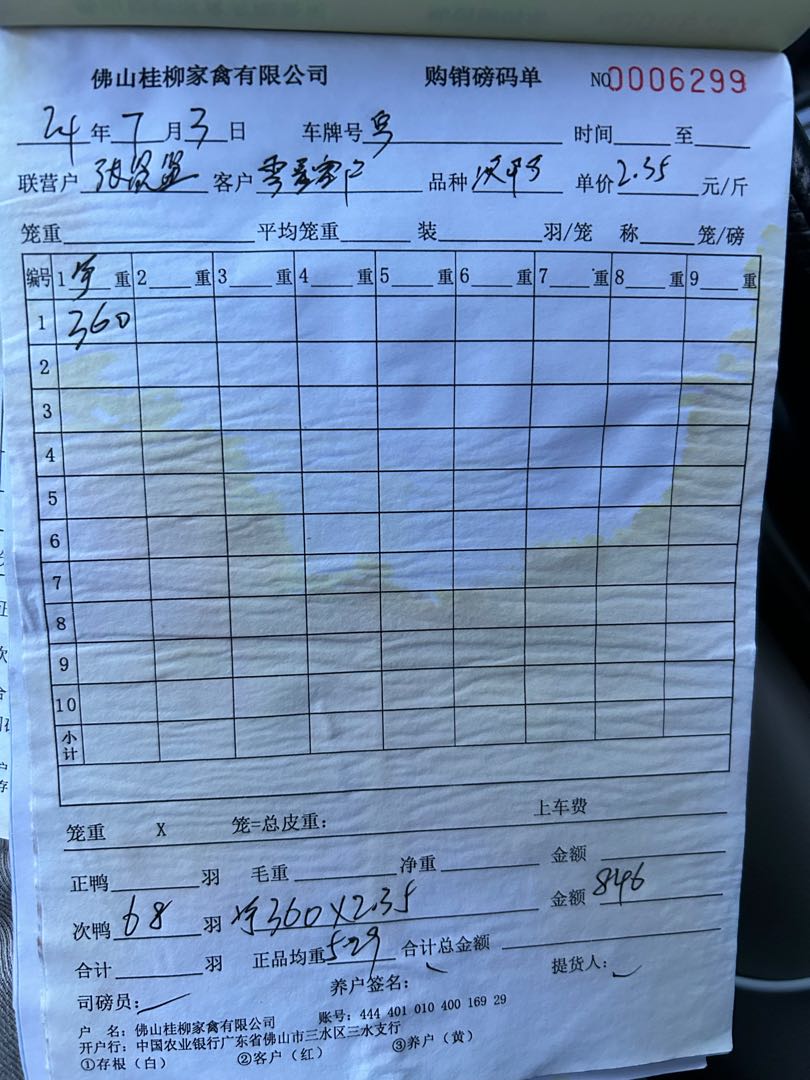 佛山桂柳家禽有限公司 购销磅码单 NO0006299
24年7月3日 车牌号 时间 至
联营户 张 客户 零星客户 品种 次鸭 单价2.35元/斤
笼重 平均笼重 装 羽/笼 称 笼/磅
编号 1净重 2 重 3 重 4 重 5 重 6 重 7 重 8 重 9 重
1 360
2
3
4
5
6
7
8
9
10
小计
笼重 X 笼=总皮重: 上车费
正鸭 羽 毛重 净重 金额
次鸭68羽 净360X2.35 金额846
合计 羽 正品均重5.29 合计总金额
司磅员: 养户签名: 提货人:
户 名: 佛山桂柳家禽有限公司 账号: 444 401 010 400 169 29
开户行: 中国农业银行广东省佛山市三水区三水支行
①存根(白) ②客户(红) ③养户(黄)